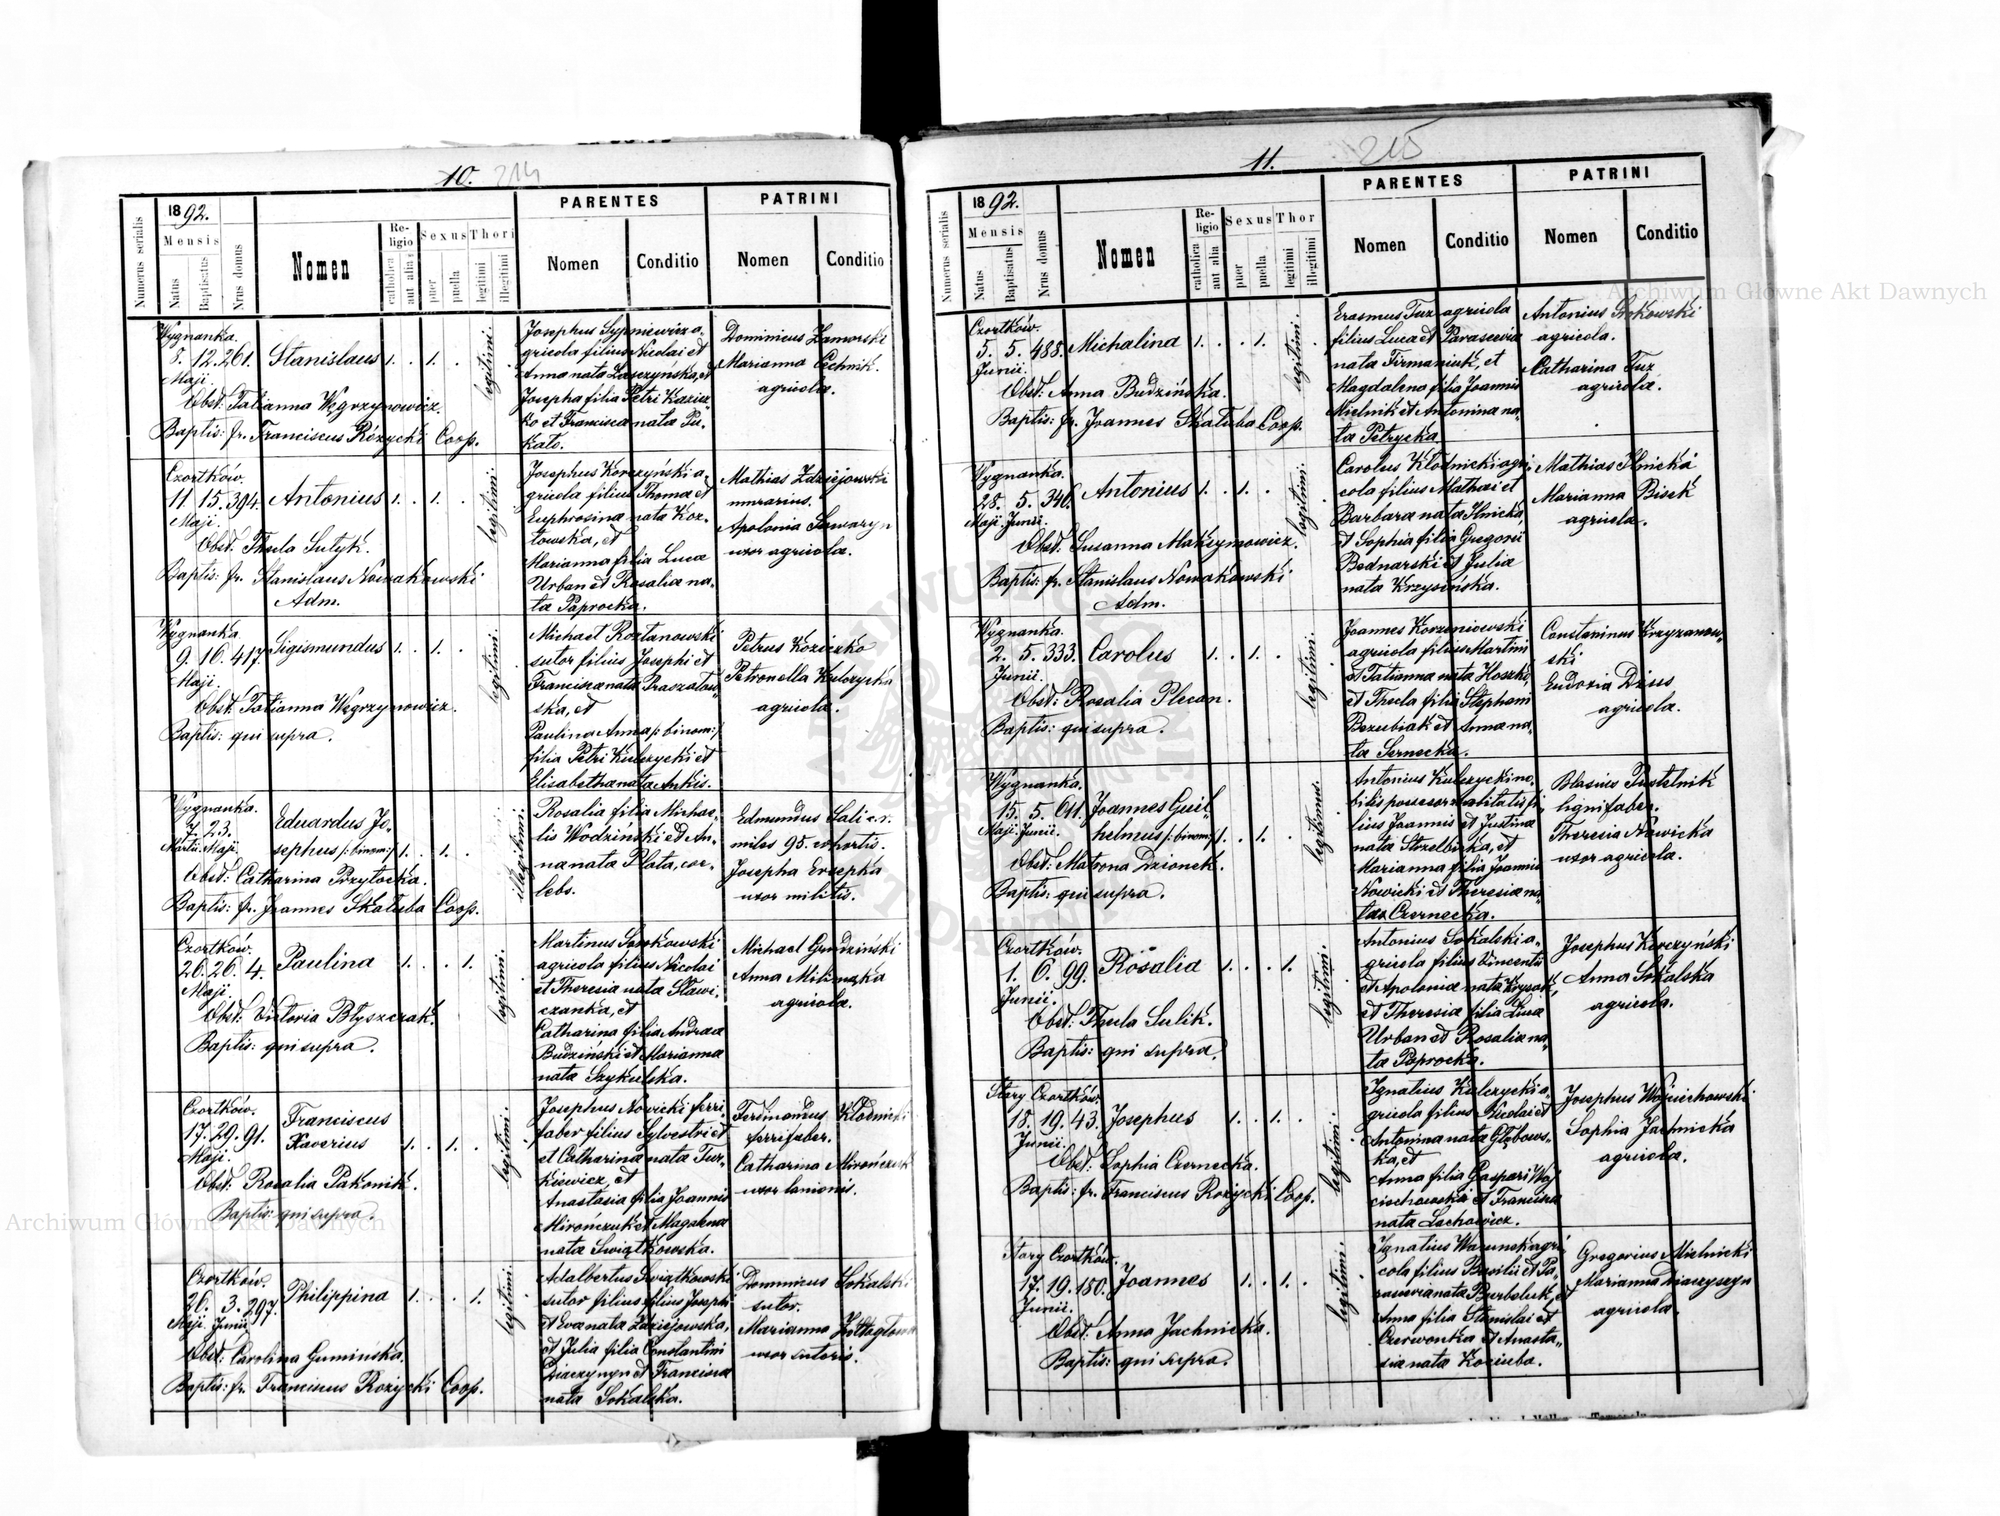 10. 214
Numerus serialis
1892.
Mensis
Natus
Baptisatus
Nrus domus
Nomen
Religio
catholica
aut alia
Sexus
puer
puella
Thori
legitimi
illegitimi
PARENTES
Nomen
Conditio
PATRINI
Nomen
Conditio
Wygnanka.
8. 12. 261. Stanislaus 1. . 1. .
Maji.
Obst. Tatianna Węgrzynowicz.
Baptis: fr. Franciscus Rożycki Coop.
legitimi.
Josephus Sypniewicz a-
gricola filius Nicolai et
Anna nata Laszczynska, et
Josepha filia Petri Kozicz-
ko et Francisca nata Pu-
kato.
Dominicus Zamorski
Marianna Cechnik.
agricolæ.
Czortków.
11. 15. 394. Antonius 1. . 1. .
Maji.
Obst. Thecla Sulyk.
Baptis: fr. Stanislaus Nowakowski
Adm.
legitimi.
Josephus Korczyński a-
gricola filius Thomæ et
Euphrosina nata Koz-
łowska, et
Marianna filia Lucæ
Urban et Rosaliæ na-
tæ Paprocka.
Mathias Zdziejowski
murarius.
Apolonia
uxor agricolæ.
Wygnanka.
9. 16. 417. Sigismundus 1. . 1. .
Maji.
Obst. Tatianna Węgrzynowicz.
Baptis: qui supra.
legitimi.
Michael Roztanowski
sutor filius Josephi et
Francisca nata Praszatow-
ska, et
Paulina Anna /: binom :/
filia Petri Kulczycki et
Elisabetha nata Ankis.
Petrus Koziczko
Petronella Kulczycka
agricolæ.
Wygnanka.
7. 23. Eduardus Jo-
Martii. Maji. sephus /: binom :/ 1. . 1. .
Obst: Catharina Przytocka.
Baptis: fr. Joannes Skałuba Coop.
illegitimi.
Rosalia filia Michae-
lis Wodzinski et An-
na nata Plota, cœ-
lebs.
Edmundus
miles 95. cohortis.
Josepha
uxor militis.
Czortków.
26. 26. 4. Paulina 1. . . 1.
Maji.
Obst: Victoria Błyszczak.
Baptis: qui supra.
legitimi.
Martinus Sosnkowski
agricola filius Nicolai
et Theresia nata Sławi-
czanka, et
Catharina filia Andreæ
Budziński et Marianna
nata Szykulska.
Michael Grudziński
Anna
agricolæ.
Czortków.
17. 29. 91. Franciscus
Maji. Xaverius 1. . 1. .
Obst: Rosalia Pakonik.
Baptis: qui supra.
legitimi.
Josephus Nowicki ferri-
faber filius Sylvestri et
et Catharina nata Tur-
kiewicz, et
Anastasia filia Joannis
Mirończuk et Magdalena
nata Świątkowska.
Ferdinandus Kłodnicki
ferrifaber.
Catharina Mirończuk
uxor lanionis.
Czortków.
26. 3. 297. Philippina 1. . . 1.
Maji. Junii.
Obst: Carolina Gumińska.
Baptis: fr. Franciscus Rożycki Coop.
legitimi.
Adalbertus Świątkowski
sutor filius filius Josephi
et Eva nata Zdziejowska,
et Julia filia Constantini
Diaczyszyn et Francisca
nata Sokalska.
Dominicus Sokalski
sutor.
Marianna
uxor sutoris.
11. 215
Numerus serialis
1892.
Mensis
Natus
Baptisatus
Nrus domus
Nomen
Religio
catholica
aut alia
Sexus
puer
puella
Thor
legitimi
illegitimi
PARENTES
Nomen
Conditio
PATRINI
Nomen
Conditio
Czortków.
5. 5. 488. Michalina 1. . . 1.
Junii.
Obst: Anna Budzińska.
Baptis: fr. Joannes Skałuba Coop.
legitimi.
Erasmus Tuz agricola
filius Lucæ et Parascevia
nata Firmaniuk, et
Magdalena filia Joannis
Mielnik et Antonina na-
ta Petrycka.
Antonius Sokowski
agricola.
Catharina Tuz
agricolæ.
Wygnanka.
28. 5. 346. Antonius 1. . 1. .
Maji. Junii.
Obst: Susanna Maksymowicz.
Baptis: fr. Stanislaus Nowakowski
Adm.
legitimi.
Carolus Kłodnicki agri-
cola filius Mathæi et
Barbara nata Ilnicka,
et Sophia filia Gregorii
Bednarski et Julia
nata Krzysińska.
Mathias Ilnicki
Marianna Bisek
agricolæ.
Wygnanka.
2. 5. 333. Carolus 1. . 1. .
Junii.
Obst: Rosalia Plecan.
Baptis: qui supra.
legitimi.
Joannes Korzeniowski
agricola filius Martini
et Tatianna nata Hoszko,
et Thecla filia Stephani
Bezubiak et Anna na-
ta Sernecka.
Constantinus Krzyzanow-
ski
Eudoxia Dzius
agricolæ.
Wygnanka.
15. 5. 611. Joannes Guil-
Maji. Junii. helmus /: binom :/ 1. . 1. .
Obst: Matrona Dzionek.
Baptis: qui supra.
legitimus.
Antonius Kulczycki no-
bilis possesor habilitatis fi-
lius Joannis et Justina
nata Strzelbicka, et
Marianna filia Joannis
Nowicki et Theresiæ na-
tæ Czernecka.
Blasius Pustelnik
lignifaber.
Theresia Nowicka
uxor agricolæ.
Czortków.
1. 6. 99. Rosalia 1. . . 1.
Junii.
Obst: Thecla Sulik.
Baptis: qui supra.
legitimi.
Antonius Sokalski a-
gricola filius Vincentii
et Apoloniæ nata Krysak,
et Theresia filia Lucæ
Urban et Rosalia na-
ta Paprocka.
Josephus Korczyński
Anna Sokalska
agricolæ.
Stary Czortków.
18. 19. 43. Josephus 1. . 1. .
Junii.
Obst: Sophia Czernecka.
Baptis: fr. Franciscus Rożycki Coop.
legitimi.
Ignatius Kulczycki a-
gricola filius Nicolai et
Antonina nata Głębows-
ka, et
Anna filia Gaspari Woj-
ciechowski et Francisca
nata Lachowicz.
Josephus Wojciechowski
Sophia Jachnicka
agricolæ.
Stary Czortków.
17. 19. 180. Joannes 1. . 1. .
Junii.
Obst: Anna Jachnicka.
Baptis: qui supra.
legitimi.
Ignatius agri-
cola filius Basilii et Pa-
rascevia nata Burbeluk, et
Anna filia Stanislai et
Czerwonka et Anasta-
sia nata Koziuba.
Gregorius Mielnicki
Marianna Diaczyszyn
agricolæ.
Archiwum Główne Akt Dawnych
Archiwum Główne Akt Dawnych